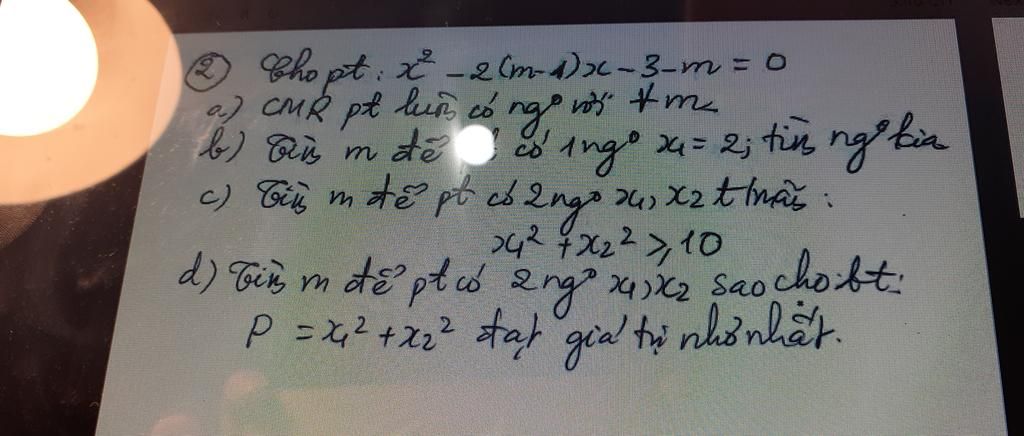 ② Cho pt: x² - 2(m-1)x - 3 - m = 0
a) CMR pt luôn có ngº với ∀m
b) Tìm m để có 1 ngº x₁ = 2; tìm ngº kia
c) Tìm m để pt có 2 ngº x₁, x₂ t/mãn:
x₁² + x₂² ≥ 10
d) Tìm m để pt có 2 ngº x₁, x₂ sao cho bt:
P = x₁² + x₂² đạt giá trị nhỏ nhất.